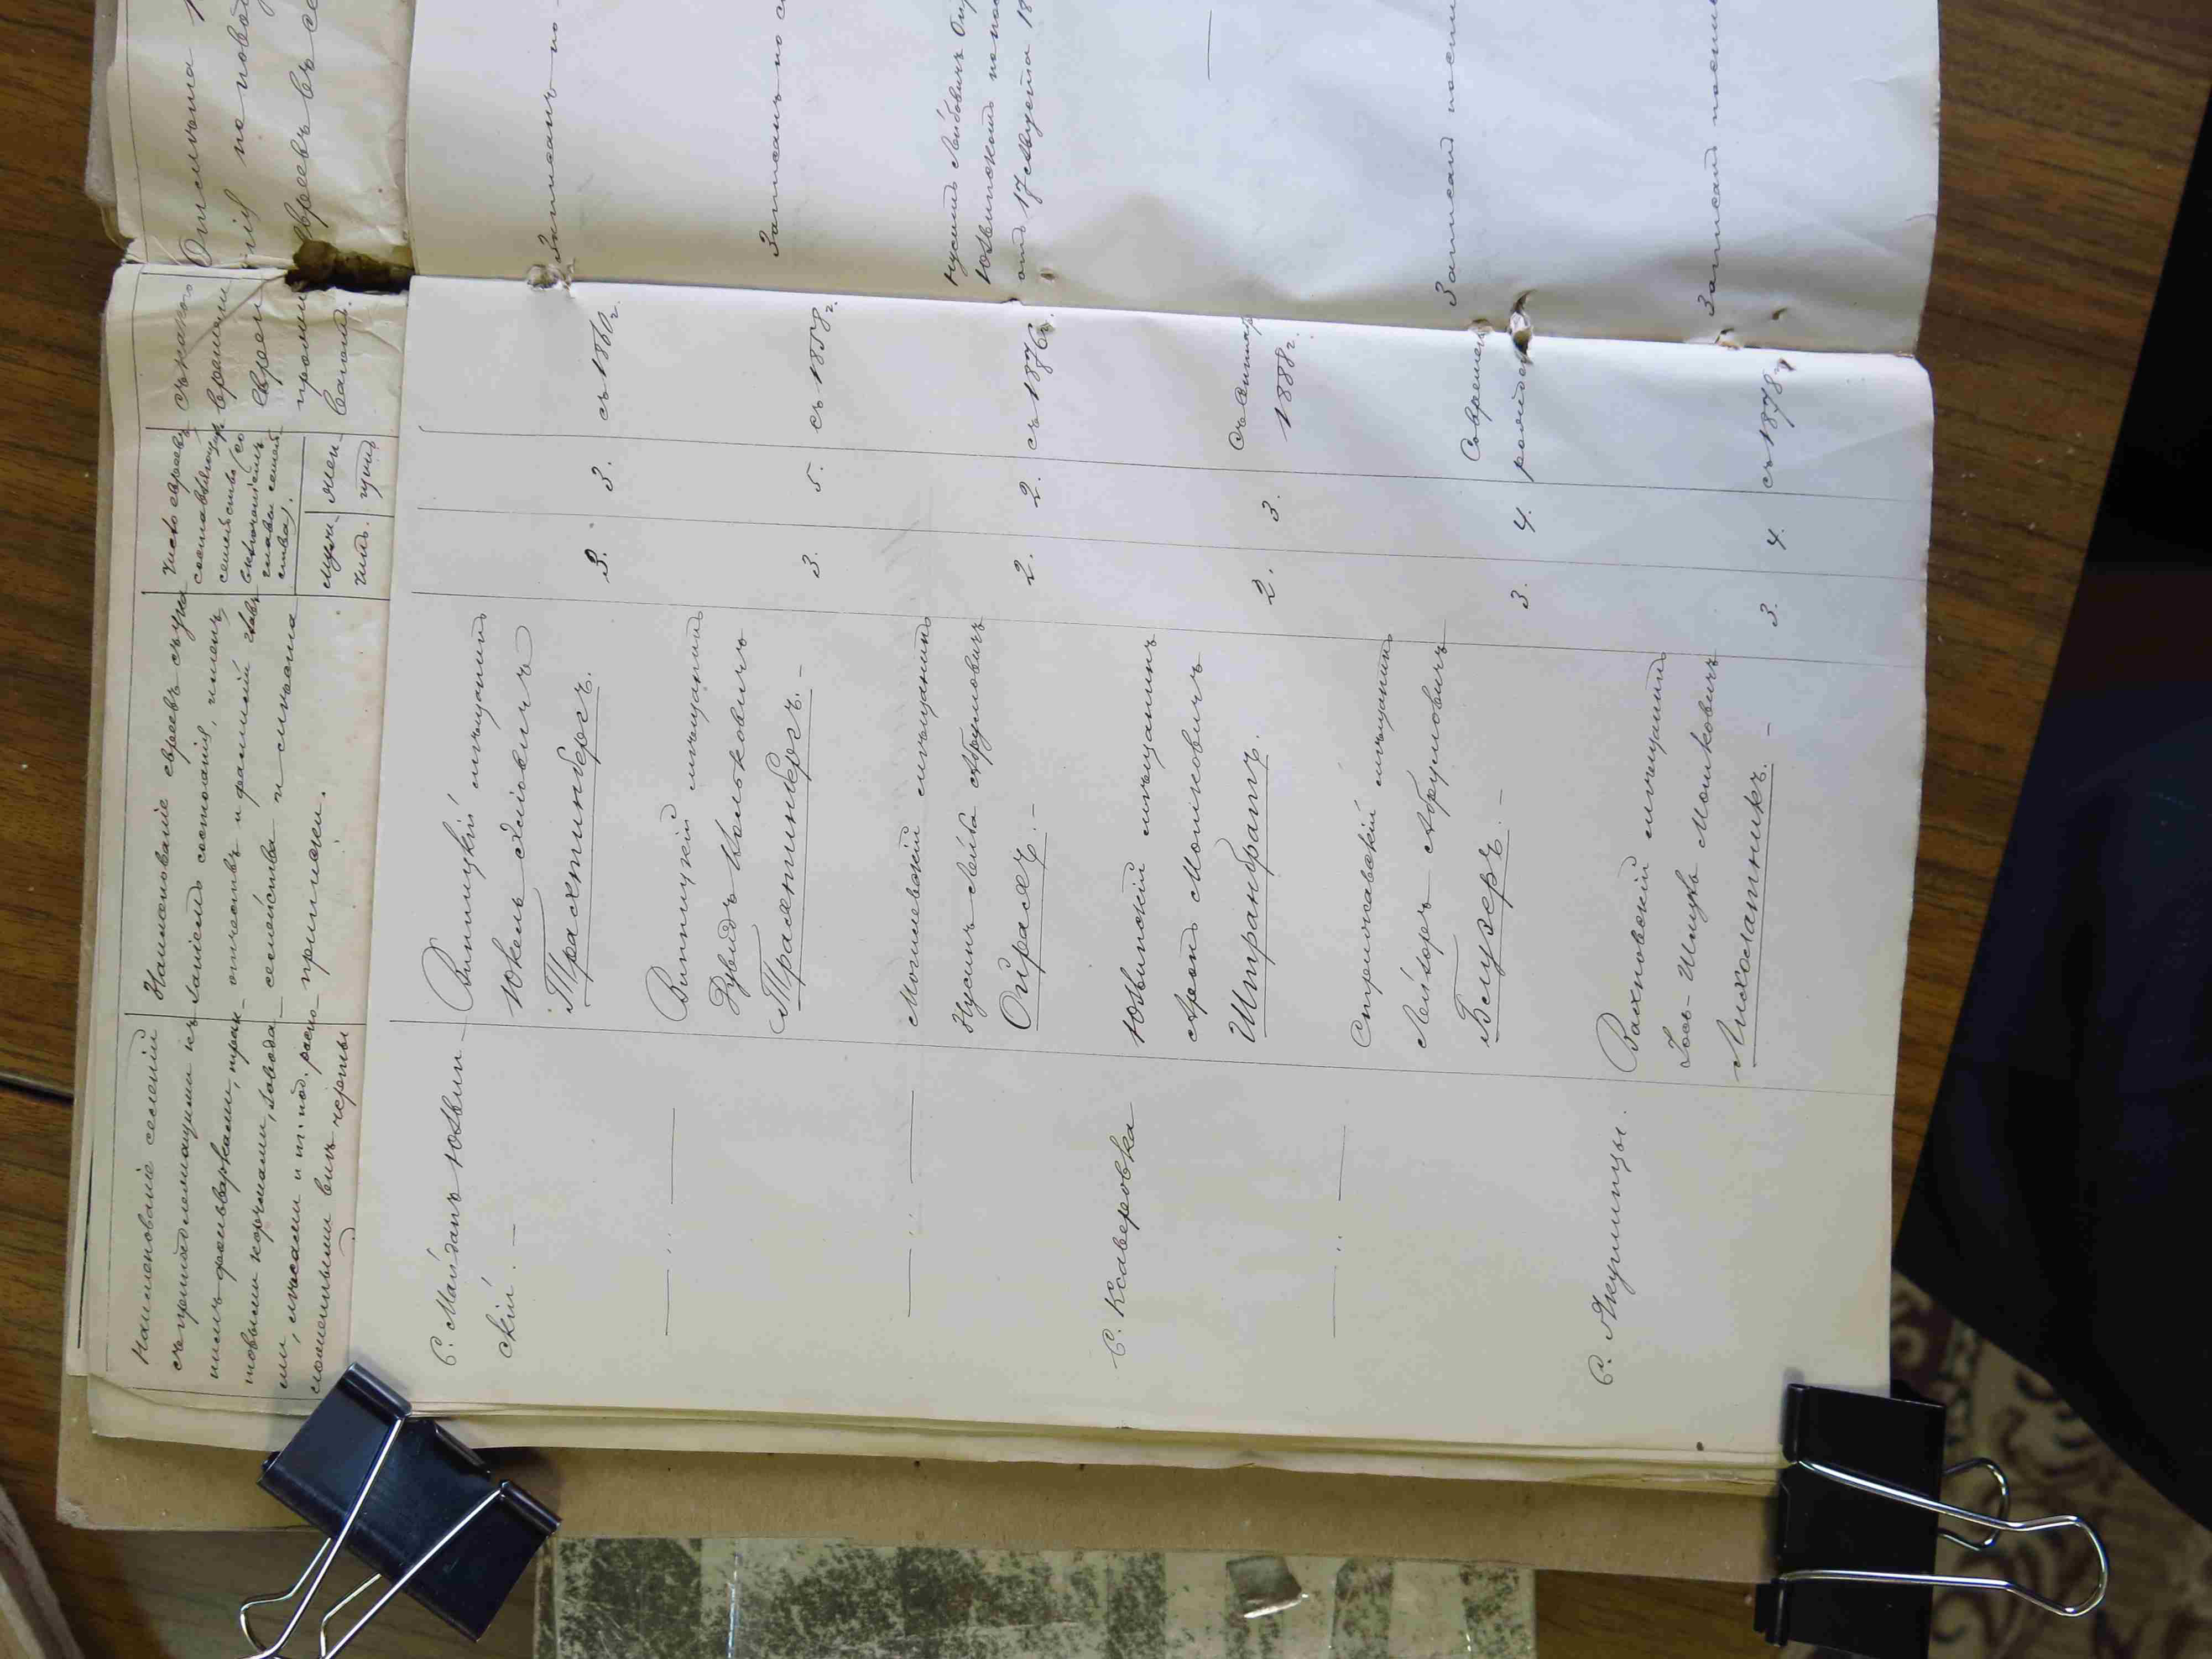 Наименованіе селеній
съ принадлежащими къ
нимъ фольварками, прис-
товыми корчмами, завода-
ми, лѣсами и т. под. распо-
ложенными внѣ черты
Наименованіе евреевъ съ ука-
заніемъ состоянія, именъ,
отчествъ и фамилій главъ
семейства и мѣста
приписки.
Число евреевъ
составляющихъ
семейства (со
включеніемъ
главы семей-
ства).
мужчинъ.
женщинъ
Съ какого
времени
евреи
прожи
ваютъ.
Отмѣтка
по повод
евреевъ въ се
С. Майданъ Юзвин-
скій. —
Винницкій мѣщанинъ
Юкель Эліовичъ
Трахтинбергъ.
3. 3. съ 1860 г.
Записанъ по
— „ —
Винницкій мѣщанинъ
Дувидъ Волъковичъ
Трахтинбергъ. —
3. 5. съ 1858 г.
Записанъ по с
— „ —
Могилевскій мѣщанинъ
Нусинъ-Лейба Абрумовичъ
Ойрахъ. —
2. 2. съ 1876 г.
Нусинъ Лейбовичъ Ойр
Юзвинскомъ
отъ 17 Августа 18
С. Ксаверовка
Юзвинскій мѣщанинъ
Аронъ Мошковичъ
Штранбратъ.
2. 3.
1888 г.
—
— „ —
Стрижавскій мѣщанинъ
Лейзоръ Абрумовичъ
Белузеръ. —
3. 4. Современи
рожден
Записанъ посем
С. Якушинцы.
Вахновскій мѣщанинъ
Іось-Ицко Мошковичъ
Лихолатникъ. —
3. 4. съ 1878 г.
Записанъ посем